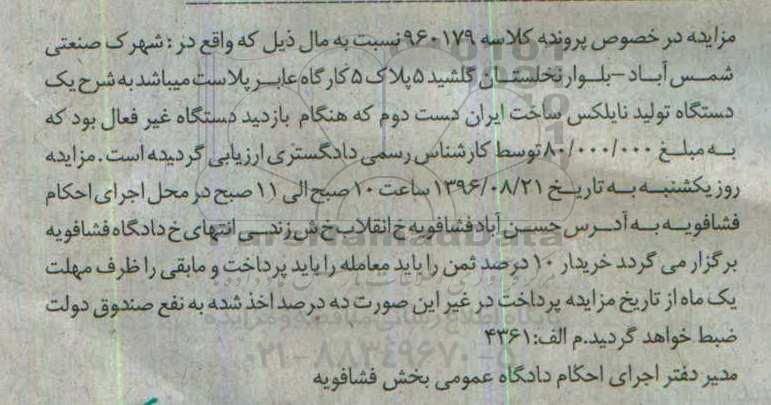 مزایده در خصوص پرونده کلاسه ۹۶۰۱۷۹ نسبت به مال ذیل که واقع در : شهرک صنعتی
شمس آباد – بلوار نخلستان گلشید ۵ پلاک ۵ کارگاه عابر پلاست میباشد به شرح یک
دستگاه تولید نایلکس ساخت ایران دست دوم که هنگام بازدید دستگاه غیر فعال بود که
به مبلغ ۸۰/۰۰۰/۰۰۰ توسط کارشناس رسمی دادگستری ارزیابی گردیده است . مزایده
روز یکشنبه به تاریخ ۱۳۹۶/۰۸/۲۱ ساعت ۱۰ صبح الی ۱۱ صبح در محل اجرای احکام
فشافویه به آدرس حسن آباد فشافویه خ انقلاب خ ش زندی انتهای خ دادگاه فشافویه
برگزار می گردد خریدار ۱۰ درصد ثمن را باید معامله را باید پرداخت و مابقی را ظرف مهلت
یک ماه از تاریخ مزایده پرداخت در غیر این صورت ده درصد اخذ شده به نفع صندوق دولت
ضبط خواهد گردید.م الف:۴۳۶۱
مدیر دفتر اجرای احکام دادگاه عمومی بخش فشافویه
۰۲۱-۸۸۳۴۹۶۷۰-۵